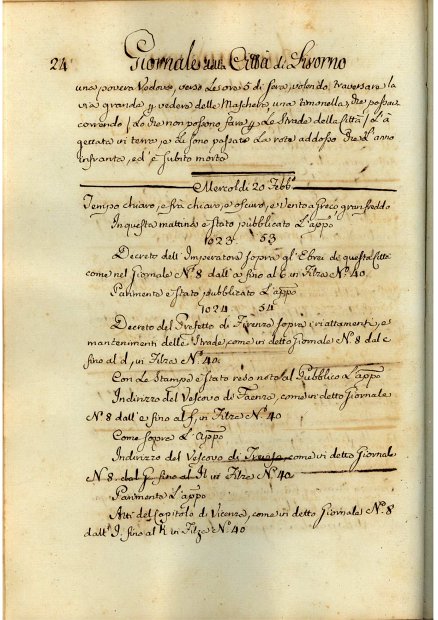 24 Giornale della Città di Livorno
una povera Vedova, verso le ore 5 di sera, volendo traversare la
via grande p vedere delle Maschere, una timonella, che passava
correndo /:lo che non possono fare p le Strade della Città:/ L'à
gettata in terra, e le sono passate le rote addosso che l'anno
infranta, ed è subito morta
Mercoldi 20 Febb.
Tempo chiaro, e frà chiaro, e oscuro, e Vento a Greco gran freddo
In questa mattina è stato pubblicato L'app.
1023 53
Decreto dell'Imperatore sopra gl'Ebrei de questa Città
come nel Giornale N. 8 dall'a fino al b in Filza N. 40
Parimente è stato pubblicato L'app.
1024 54
Decreto del Prefetto di Firenze sopra i riattamenti, e
mantenimenti delle Strade, come in detto Giornale N. 8 dal c
fino al d, in Filza N. 40.
Con le Stampe è stato reso noto al Pubblico L'app.
Indirizzo del Vescovo di Faenza, come in detto Giornale
N. 8 dall'e fino al f, in Filza N. 40
Come sopra L'app.
Indirizzo del Vescovo di Treviso, come in detto Giornale
N. 8 dal g fino al H in Filza N. 40
Parimente L'app.
Atti del Capitolo di Vicenza, come in detto Giornale N. 8
dall'I. fino al K in Filza N. 40